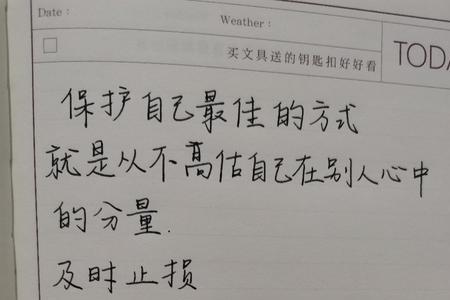 Date :
Weather :
买文具送的钥匙扣好好看
TODA
保护自己最佳的方式
就是从不高估自己在别人心中
的分量.
及时止损